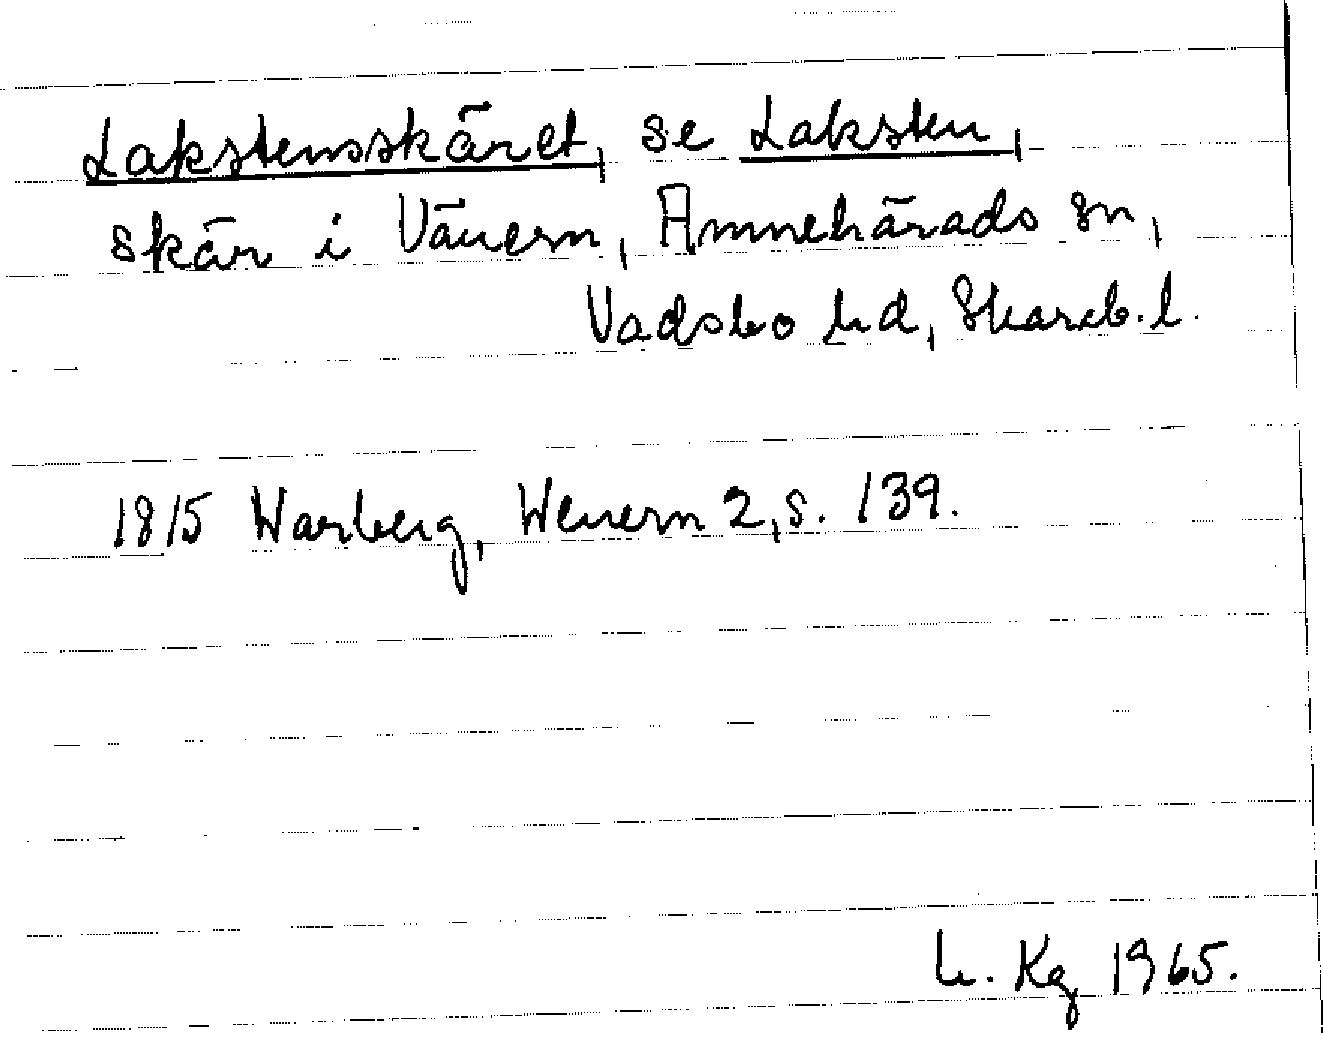 Lakstensskäret, se Laksten,
skär i Vänern, Amnehärads sn,
Vadsbo hd, Skarab. l.
1815 Warberg, Wenern 2, s. 139.
h. Kg 1965.